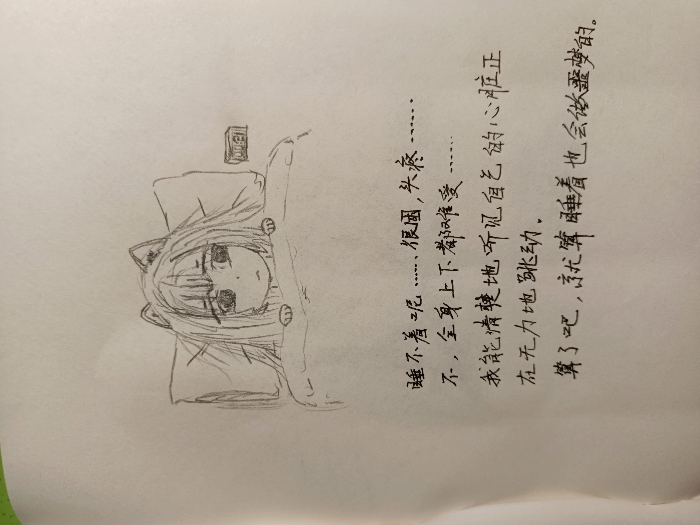 睡不着呢……很困，头疼……
不，全身上下都难受……
我能清楚地听见自己的心脏正
在无力地跳动。
算了吧，就算睡着也会做噩梦的。